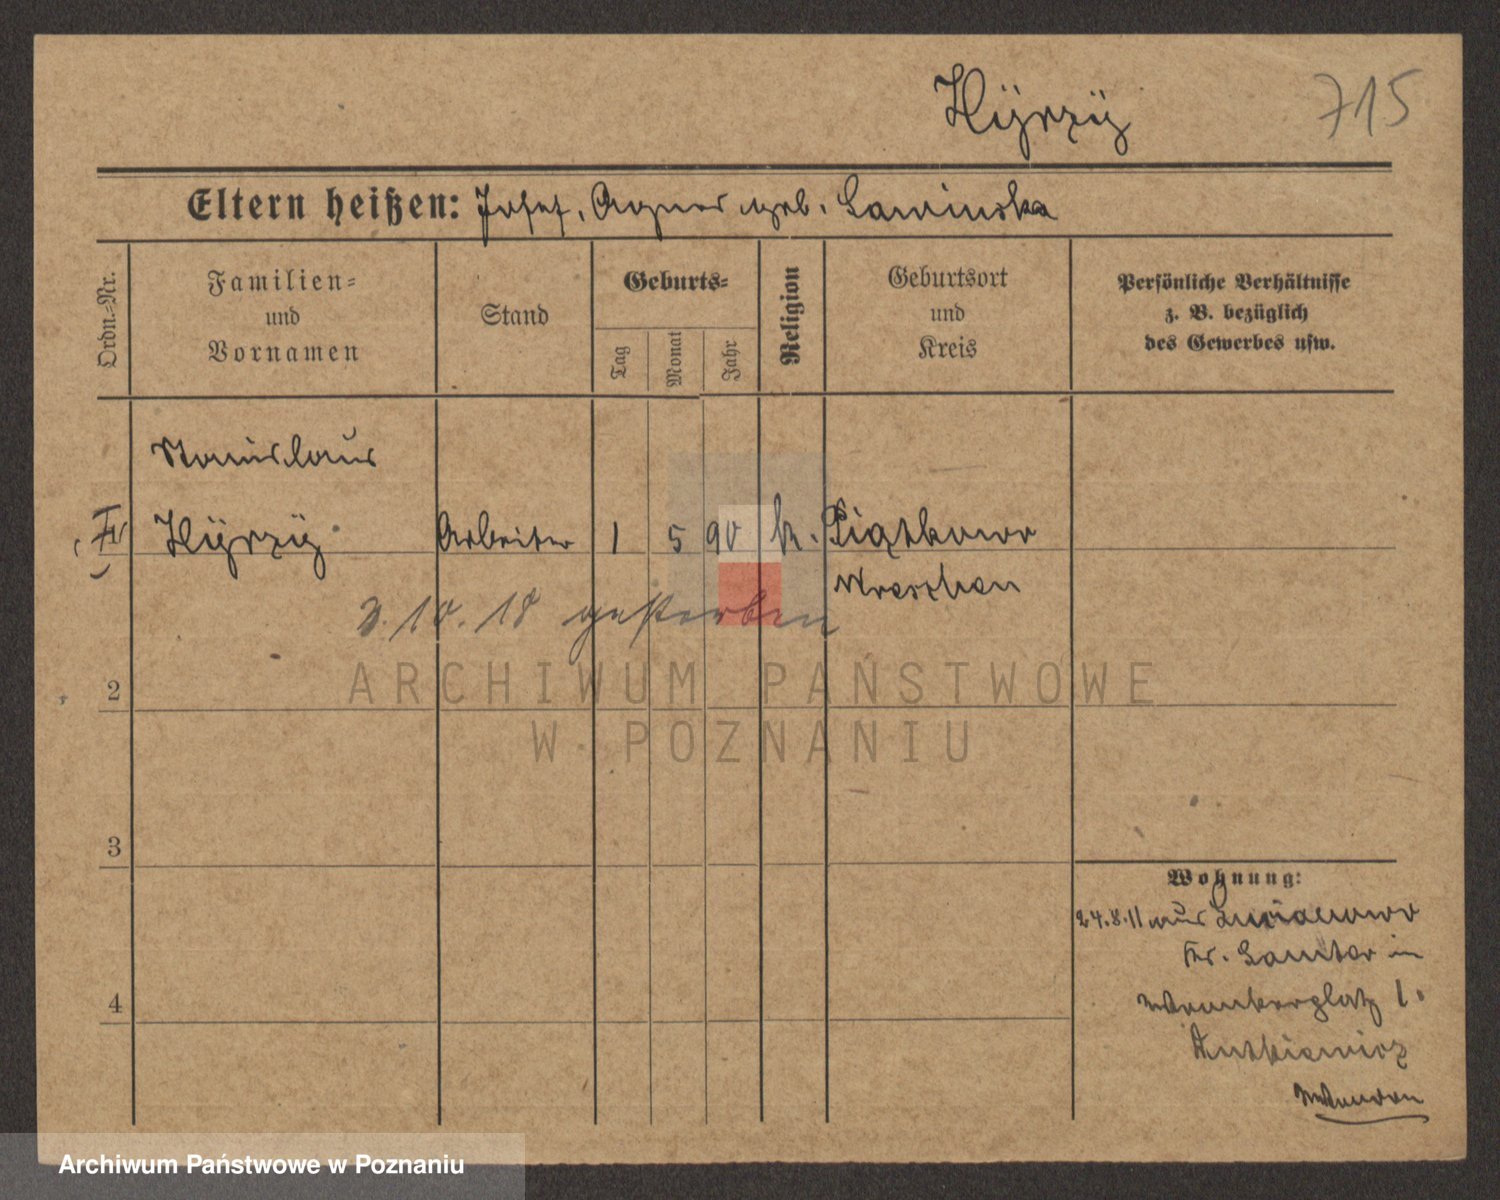 715
Eltern heißen: Josef, Agnes geb. Laminska
Ordn.-Nr.
Familien-
und
Vornamen
Stand
Geburts-
Tag
Monat
Jahr
Religion
Geburtsort
und
Kreis
Persönliche Verhältnisse
z. B. bezüglich
des Gewerbes usw.
Stanislaus
Arbeiter 1 5 90 k. Piątkowo
Wreschen
3.10.18 gestorben
ARCHIWUM PAŃSTWOWE
W POZNANIU
2
3
4
Wohnung:
24.8.11 aus
Kr. Samter in
1.
Antkiewicz
Archiwum Państwowe w Poznaniu